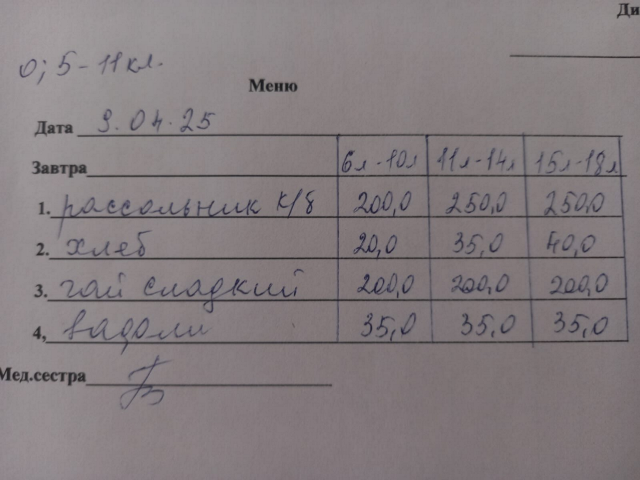 Ди
0; 5-11кл.
Меню
Дата 9.04.25
Завтра 6л-10л 11л-14л 15л-18л
1. рассольник к/б 200,0 250,0 250,0
2. хлеб 20,0 35,0 40,0
3. чай сладкий 200,0 200,0 200,0
4, 35,0 35,0 35,0
Мед.сестра